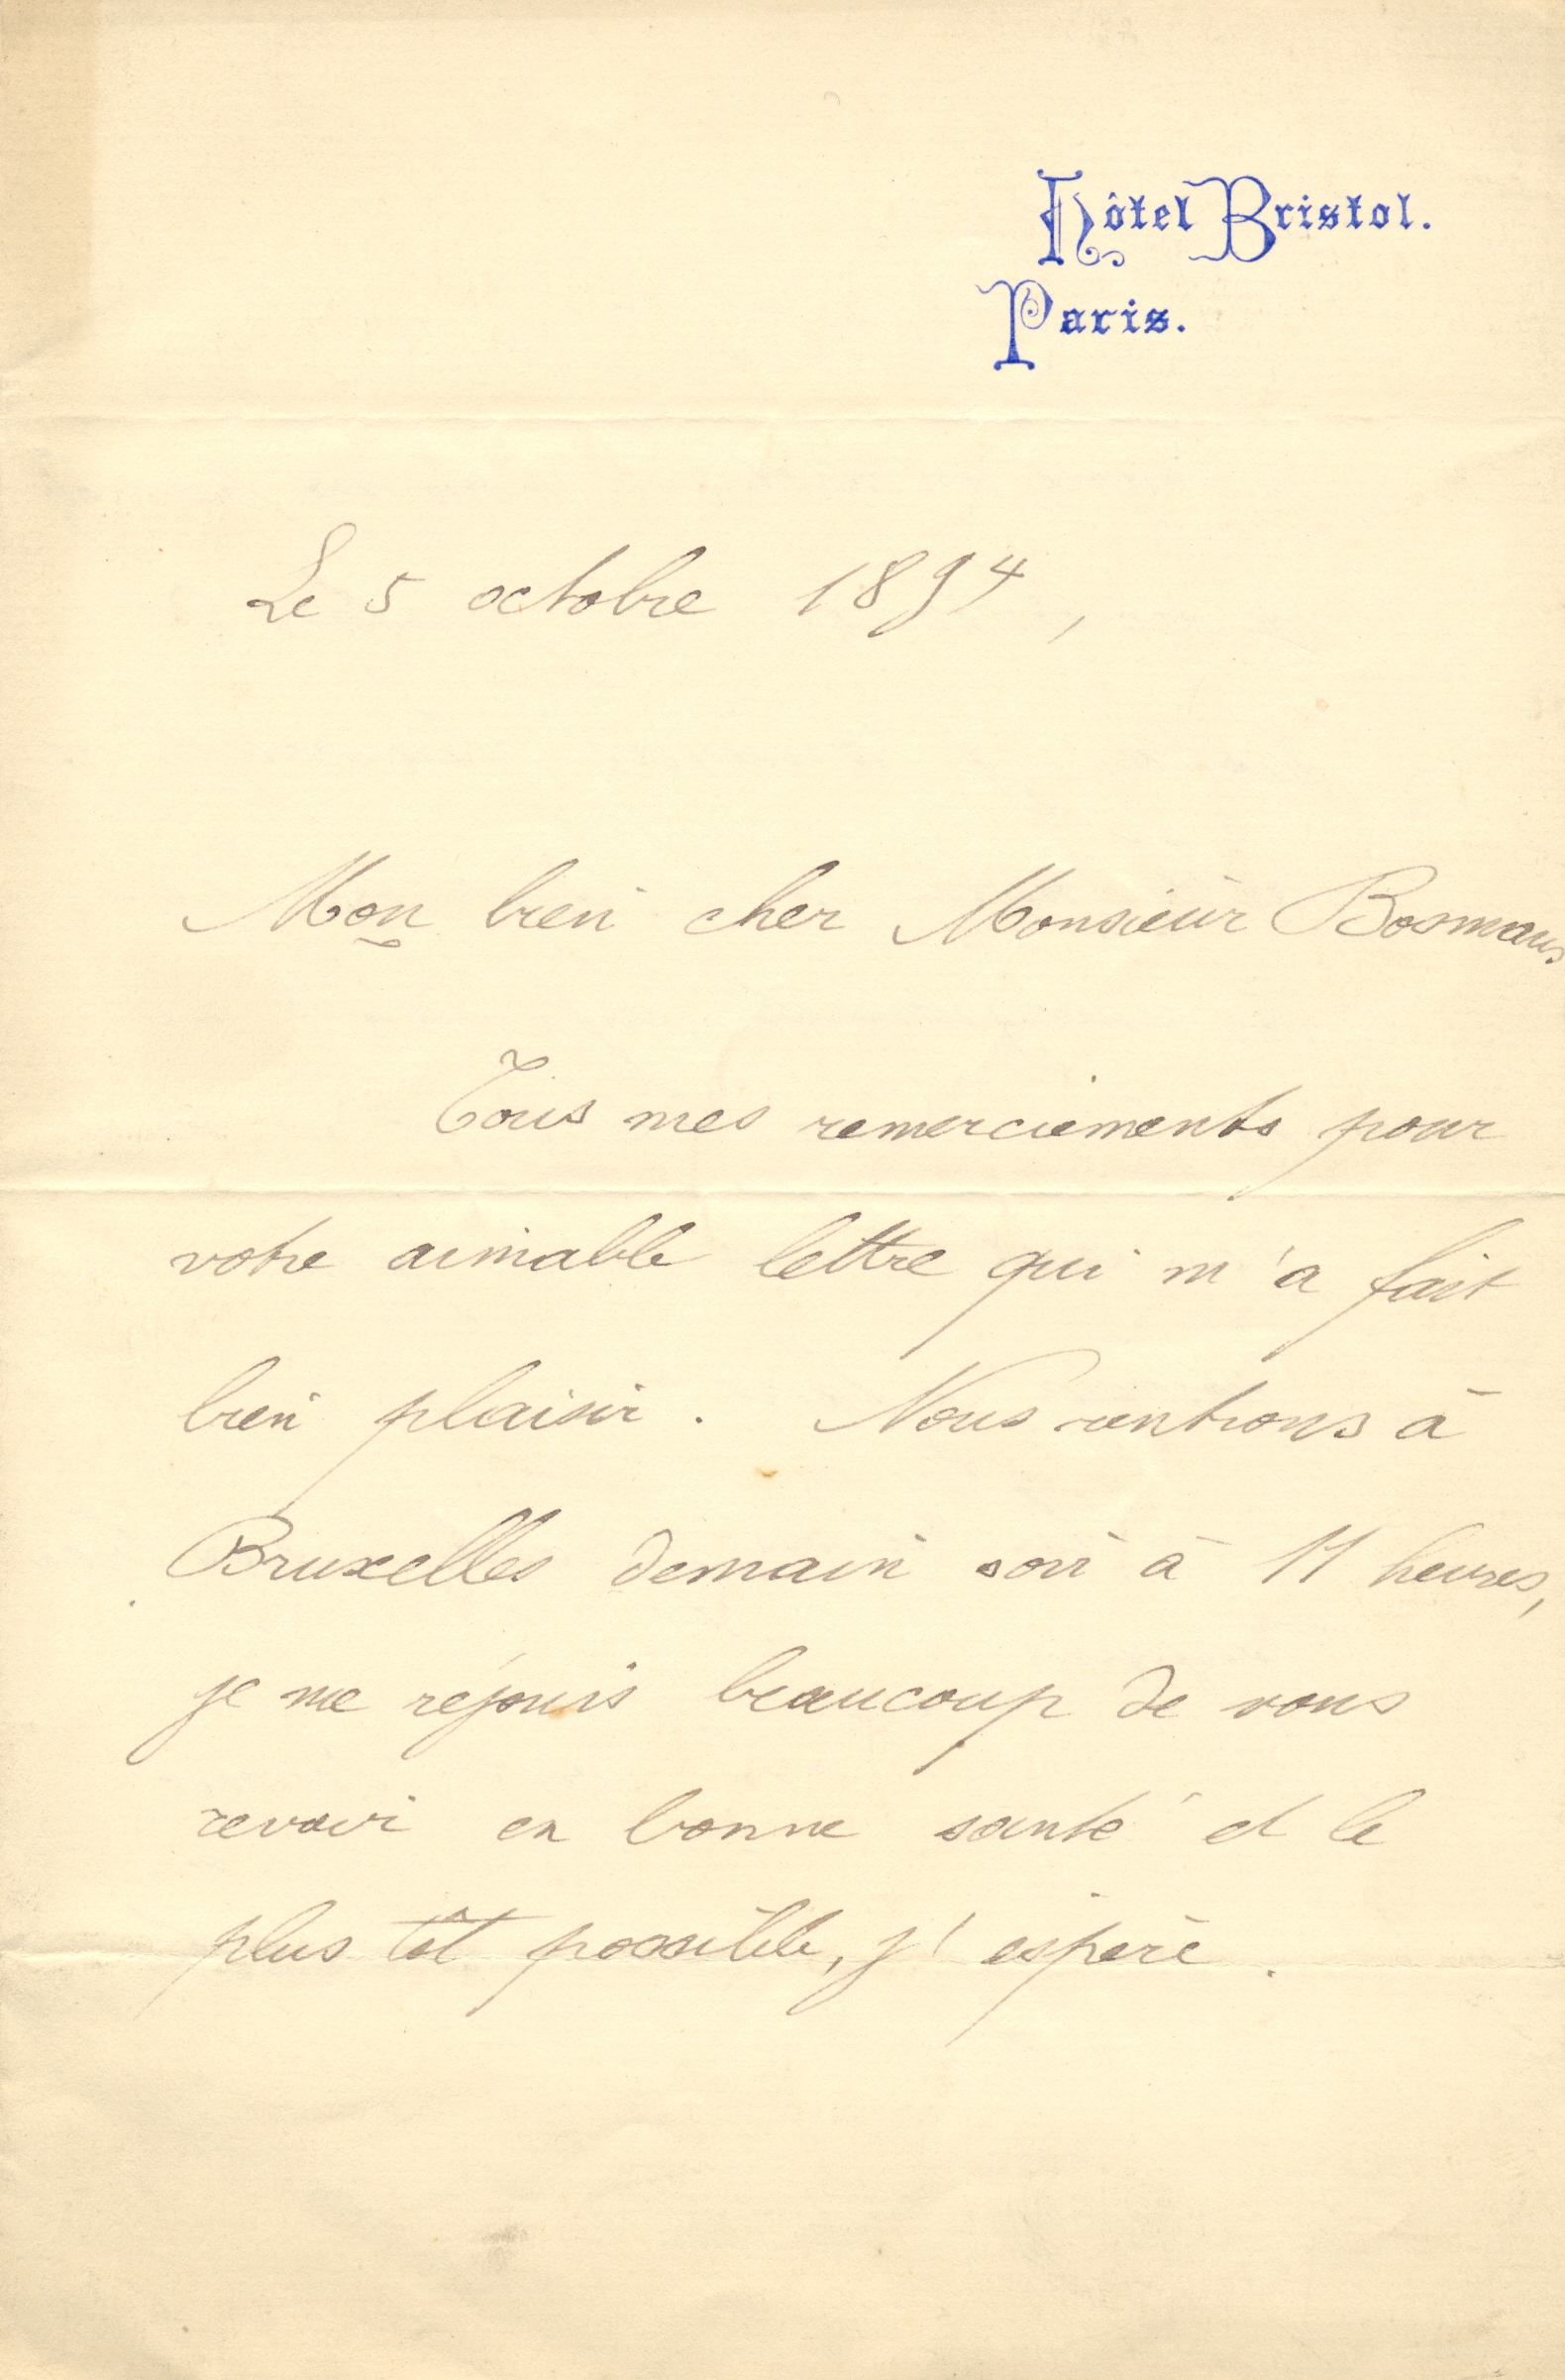 Hôtel Bristol.
Paris.
Le 5 octobre 1894,
Mon bien cher Monsieur Bosmans
Tous mes remerciements pour
votre aimable lettre qui m'a fait
bien plaisir. Nous rentrons à
Bruxelles demain soir à 11 heures,
je me réjouis beaucoup de vous
revoir en bonne santé et le
plus tôt possible, j'espère.